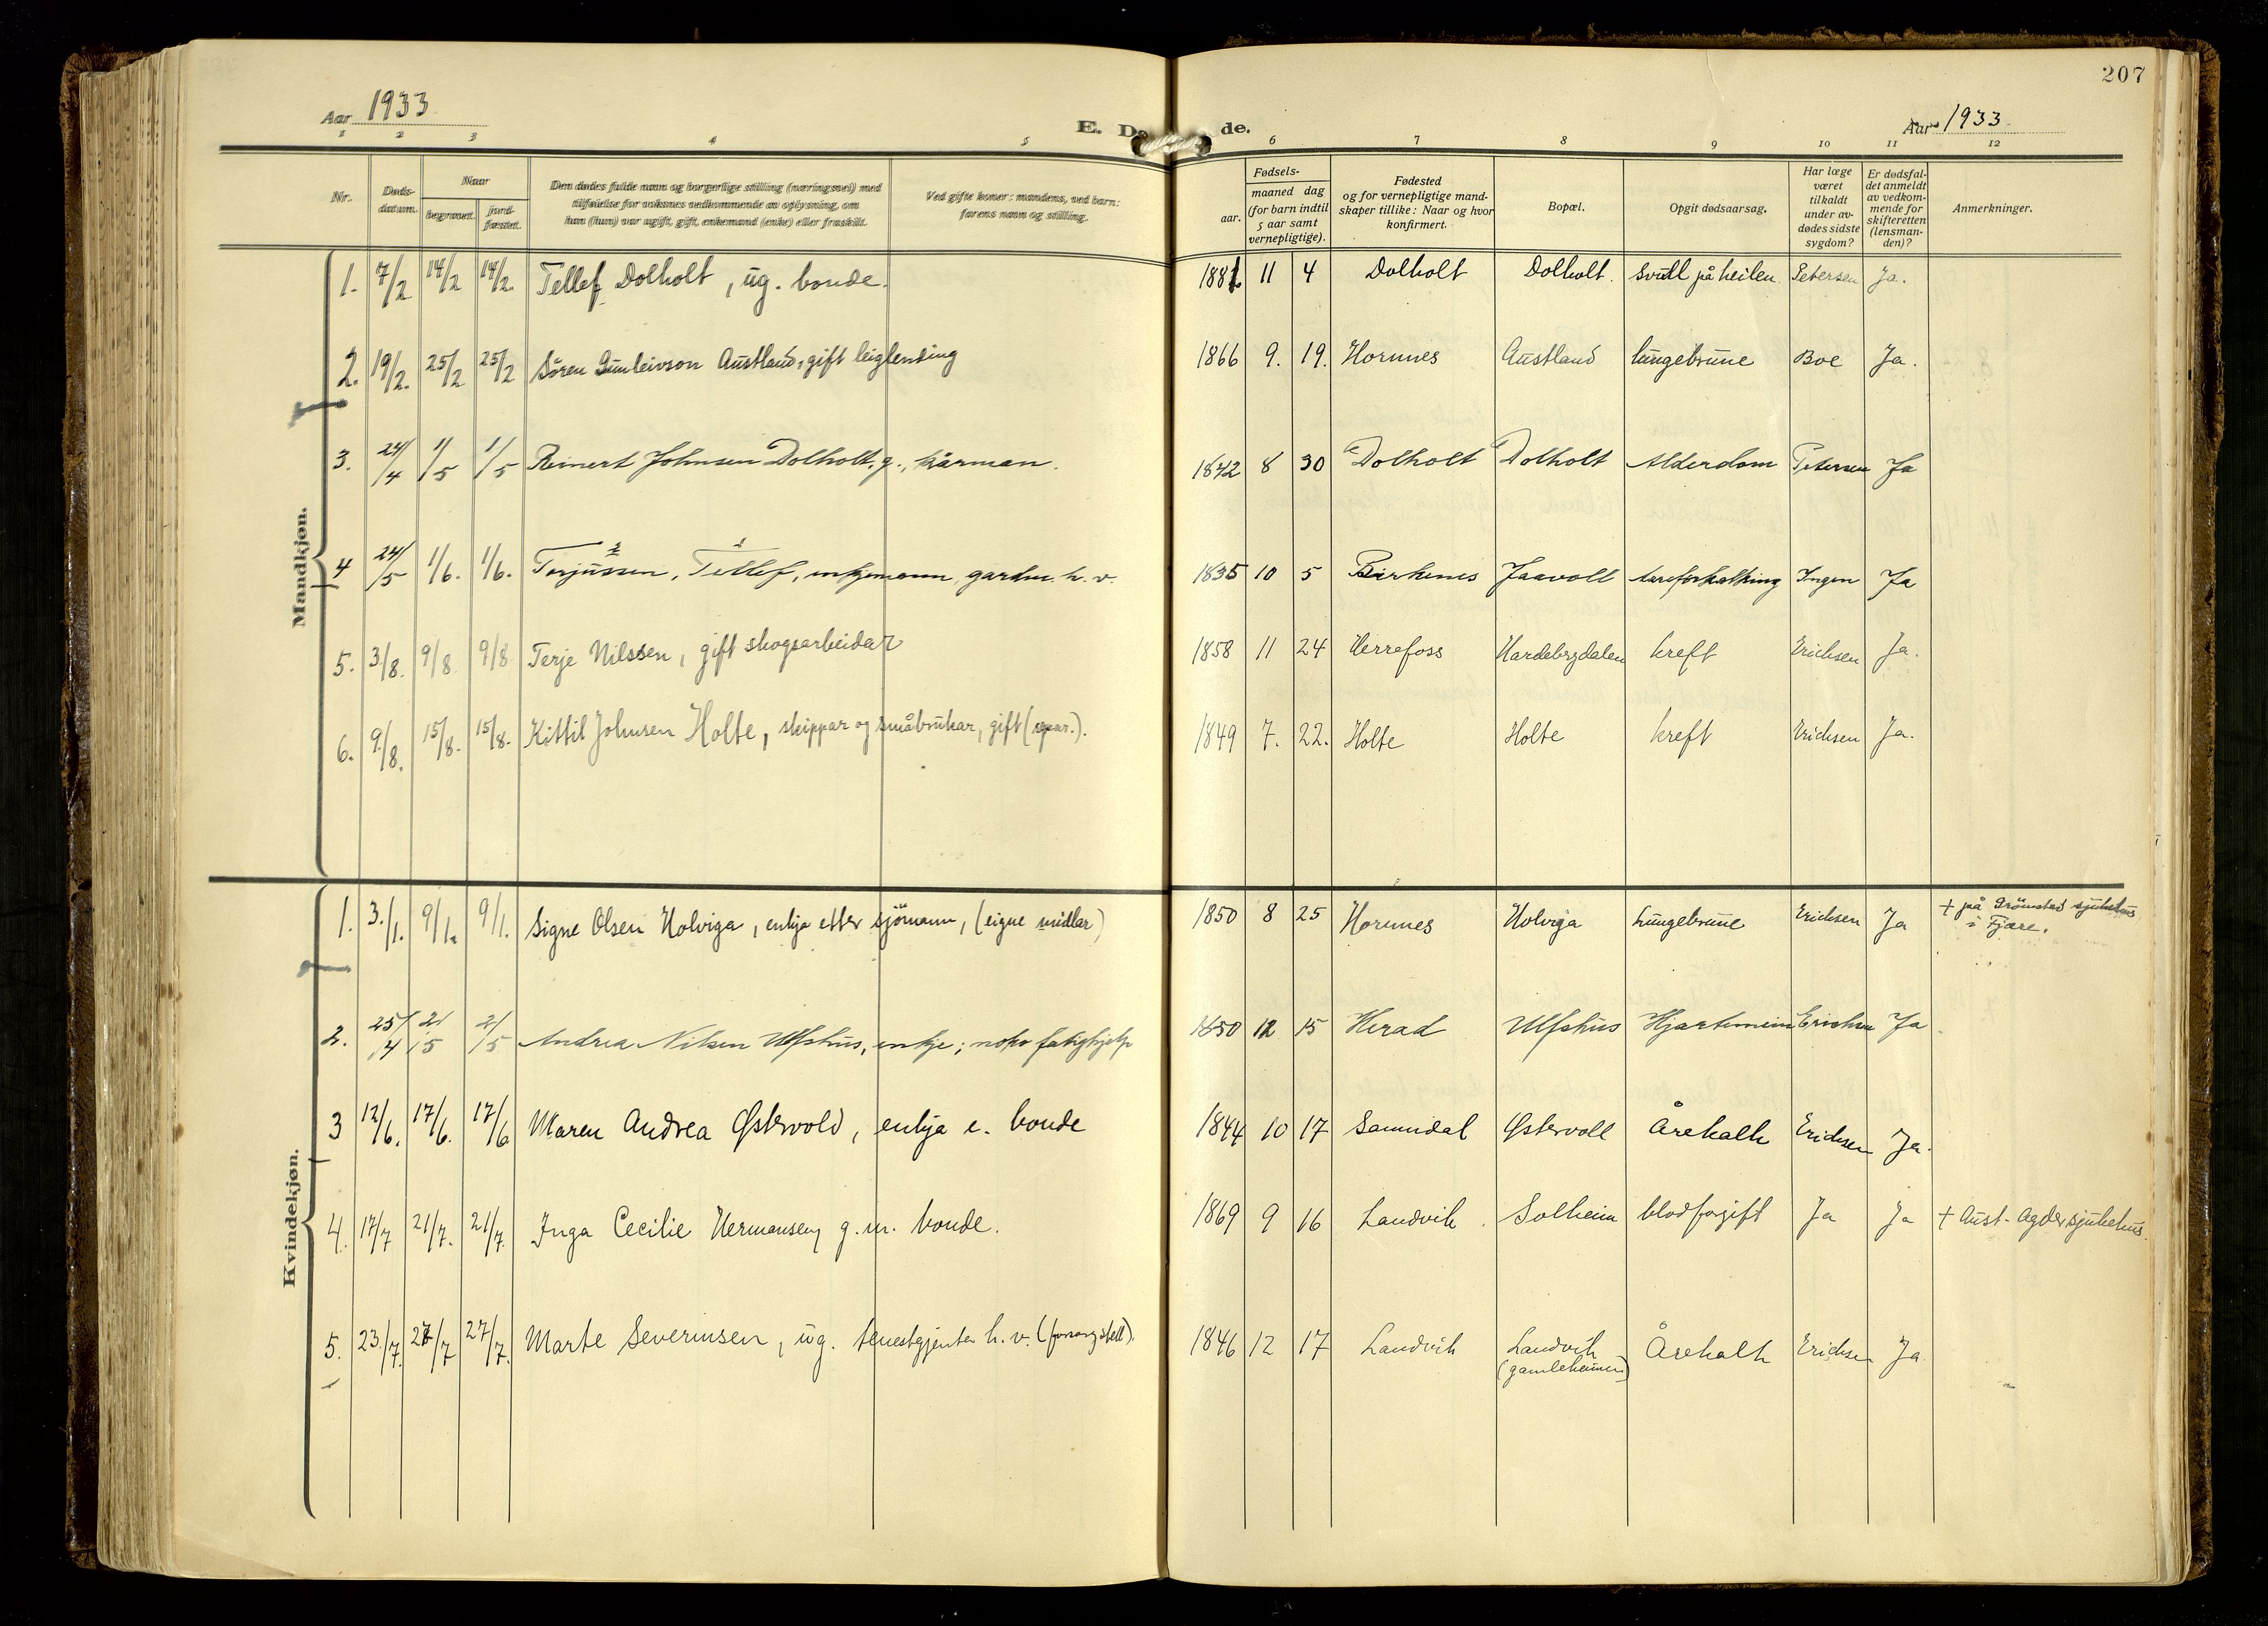 207
Aar 1933
E. De de.
Aar 1933
1 2 3 4 5 6 7 8 9 10 11 12
Nr.
Døds-
datum.
Naar
begravet.
jord-
fæstet.
Den dødes fulde navn og borgerlige stilling (næringsvei) med
tilføielse for voksnes vedkommende av oplysning, om
han (hun) var ugift, gift, enkemand (enke) eller fraskilt.
Ved gifte koner: mandens, ved barn:
farens navn og stilling.
Fødsels-
aar.
maaned dag
(for barn indtil
5 aar samt
vernepligtige).
Fødested
og for vernepligtige mand-
skaper tillike: Naar og hvor
konfirmert.
Bopæl.
Opgit dødsaarsag.
Har læge
været
tilkaldt
under av-
dødes sidste
sygdom?
Er dødsfal-
det anmeldt
av vedkom-
mende for
skifteretten
(lensman-
den)?
Anmerkninger.
Mandkjøn.
1. 7/2 14/2 14/2. Tellef Dolholt, ug. bonde. 1881 11 4 Dolholt Dolholt. Svull på heilen. Petersen Ja.
2. 19/2. 25/2 25/2 Sören Gunleivson Austland, gift leiglending 1866 9. 19. Hornnes Austland lungebrune Boe Ja.
3. 24/4 1/5 1/5 Reinert Johnsen Dolholt, g., kårman. 1842 8 30 Dolholt Dolholt Alderdom Petersen Ja
4 24/5 1/6. 1/6. Terjussen, Tellef, enkjemann, gardm. h. v. 1835 10 5 Birkenes Jaavoll Aareforkalking Ingen Ja
5. 3/8. 9/8 9/8 Terje Nilssen, gift skogsarbeidar 1858 11 24 Herrefoss Hardebergdalen kreft Erichsen Ja.
6. 9/8. 15/8. 15/8. Kittil Johnsen Holte, skippar og småbrukar, gift (separ.). 1849 7. 22. Holte Holte kreft Erichsen Ja.
Kvindekjøn.
1. 3./1. 9/1. 9/1. Signe Olsen Holviga, enkja etter sjömann, (eigne midlar) 1850 8 25 Hornnes Holviga Lungebrune Erichsen Ja + på Grömstad sjukehus
i Fjære.
2. 25/4 2/5 2/5 Andrea Nilsen Ulfshus, enkje; nokr fatighjelp 1850 12 15 Herad Ulfshus Hjartemein Erichsen Ja
3 12/6. 17/6. 17/6 Maren Andrea Østervold, enkja e. bonde 1844 10 17 Sannidal Østervoll Årekalk Erichsen Ja.
4. 17/7 21/7. 21/7. Inga Cecilie Hermansen, g. m. bonde. 1869 9 16 Landvik. Solheim blodforgift Ja Ja + Aust-Agder sjukehus.
5. 23./7. 27/7 27/7. Marte Severinsen, ug. tenestgjenta h. v. 1846 12 17 Landvik Landvik
(gamleheimen) Årekalk Erichsen Ja.